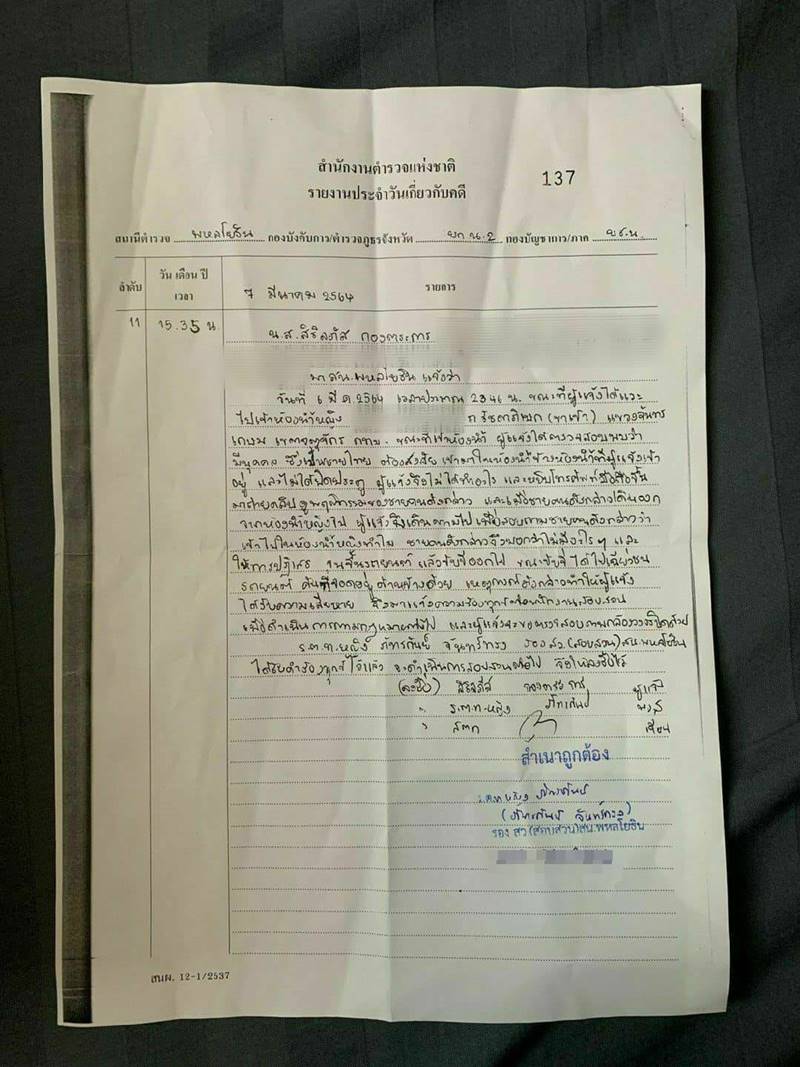 สำนักงานตำรวจแห่งชาติ
137
รายงานประจำวันเกี่ยวกับคดี
สถานีตำรวจ พหลโยธิน กองบังคับการ/ตำรวจภูธรจังหวัด บก.น.2 กองบัญชาการ/ภาค บช.น.
ลำดับ วัน เดือน ปี เวลา 7 มีนาคม 2564 รายการ
11 15.35 น น.ส.สิริลภัส กองตระการ
มาสน.พหลโยธิน แจ้งว่า
วันที่ 6 มี.ค.2564 เวลาประมาณ 23 น. ขณะที่ผู้แจ้งได้แวะ
ไปเข้าห้องน้ำหญิง ถ.รัชดาภิเษก (ขาเข้า) แขวงจันทร
เกษม เขตจตุจักร กทม. ขณะที่เข้าห้องน้ำ ผู้แจ้งได้ตรวจสอบพบว่า
มีบุคคล ซึ่งเป็นชายไทย ต้องสงสัย เข้ามาในห้องน้ำข้างห้องน้ำที่ผู้แจ้งเข้า
อยู่ และไม่ได้ปิดประตู ผู้แจ้งจึงไม่ได้ทำอะไร และหยิบโทรศัพท์มือถือขึ้น
มาถ่ายคลิปดูพฤติกรรมของชายคนดังกล่าว และเมื่อชายคนดังกล่าวเดินออก
จากห้องน้ำหญิงไป ผู้แจ้งจึงเดินตามไป เพื่อสอบถามชายคนดังกล่าวว่า
เข้าไปในห้องน้ำหญิงทำไม ชายคนดังกล่าวจึงบอกว่าไม่มีอะไรๆ และ
ให้การปฏิเสธ จนขึ้นรถยนต์ แล้วขับขี่ออกไป ขณะขับขี่ ได้ไปเฉี่ยวชน
รถยนต์ คันที่จอดอยู่ด้านข้างด้วย เหตุการณ์ดังกล่าวทำให้ผู้แจ้ง
ได้รับความเสียหาย จึงมาแจ้งความร้องทุกข์ต่อพนักงานสอบสวน
เพื่อดำเนินการตามกฎหมายต่อไป และผู้แจ้งจะขอตรวจสอบตามกล้องวงจรปิดด้วย
ร.ต.ท.หญิง ภัทรกันย์ จันทร์ทรง รอง สว.(สอบสวน) สน.พหลโยธิน
ได้รับคำร้องทุกข์ไว้แล้ว จะดำเนินการสอบสวนต่อไป จึงให้ลงชื่อไว้
(ลงชื่อ) สิริลภัส กองตระการ ผู้แจ้ง
" ร.ต.ท.หญิง ภัทรกันย์ พงส
" ส.ต.ต. เขียน
สำเนาถูกต้อง
ร.ต.ท.หญิง ภัทรกันย์
(ภัทรกันย์ จันทร์ทรง)
รอง สว.(สอบสวน)สน.พหลโยธิน
สนผ. 12-1/2537